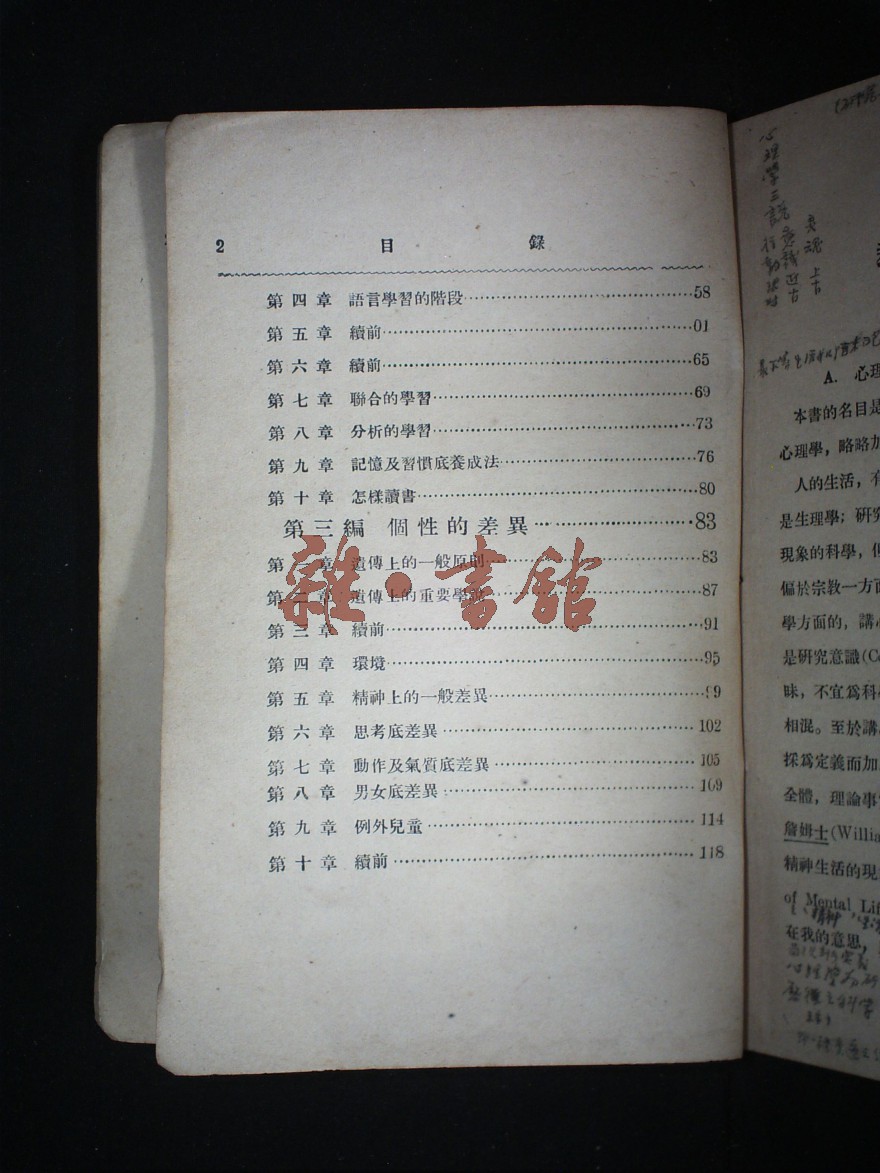 2 目 錄
第四章 語言學習的階段 58
第五章 續前 01
第六章 續前 65
第七章 聯合的學習 69
第八章 分析的學習 73
第九章 記憶及習慣底養成法 76
第十章 怎樣讀書 80
第三編 個性的差異 83
第一章 遺傳上的一般原則 83
第二章 遺傳上的重要學說 87
第三章 續前 91
第四章 環境 95
第五章 精神上的一般差異 99
第六章 思考底差異 102
第七章 動作及氣质底差異 105
第八章 男女底差異 109
第九章 例外兒童 114
第十章 續前 118
雜·書館
心理學三說
靈魂 上古
A. 心理
本書的名目是
心理學，略略加
人的生活，有
是生理學；研究
現象的科學，但
偏於宗教一方面
學方面的，講心
是研究意識(Co
昧，不宜爲科
相混。至於講
採爲定義而加
全體，理論事
詹姆士(Willia
精神生活的現
of Mental Lif
在我的意思，